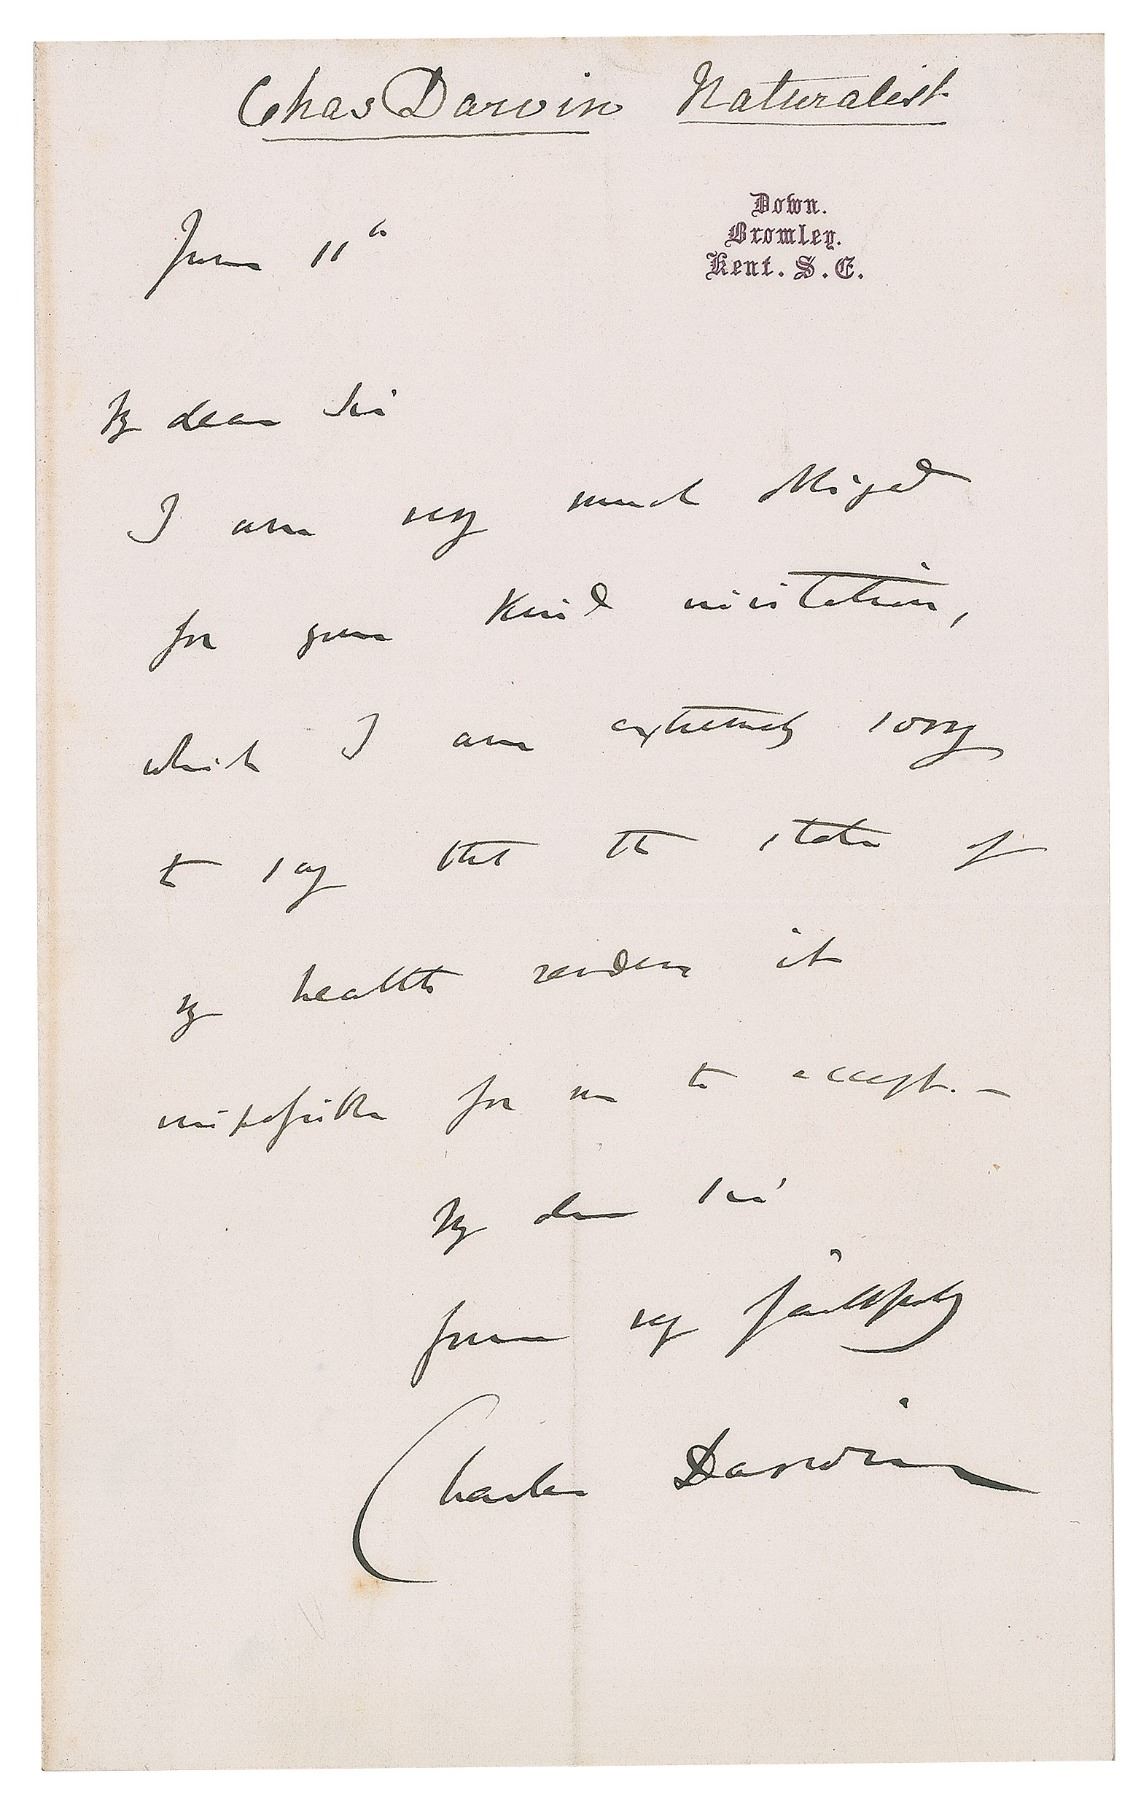 Chas Darwin Naturalist
Down.
Bromley.
Kent. S.E.
June 11th
My dear Sir
I am very much obliged
for your kind invitation,
which I am extremely sorry
to say that the state of
my health renders it
impossible for me to accept. —
My dear Sir
yours very faithfully
Charles Darwin